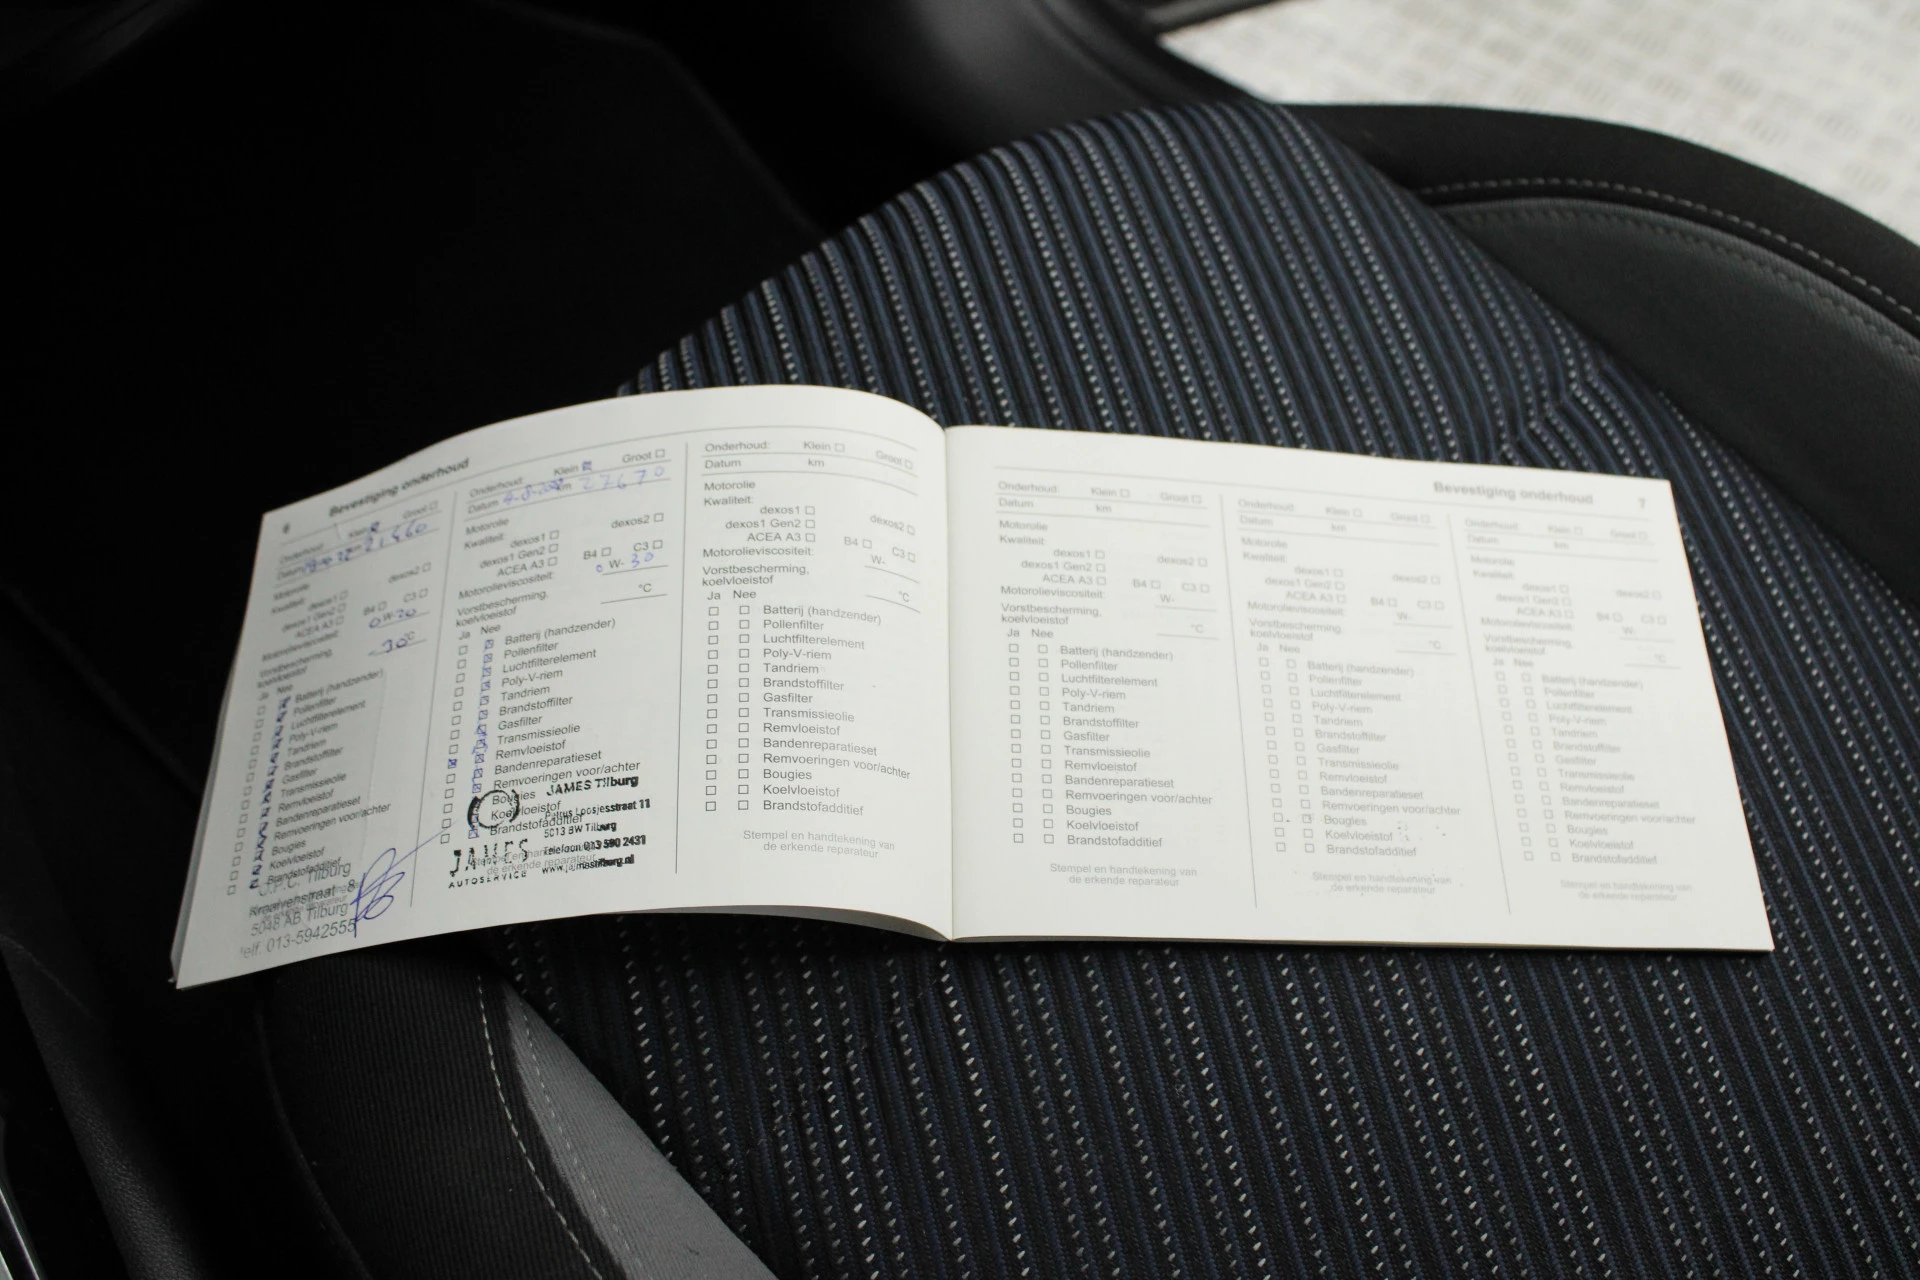 6 Bevestiging onderhoud
Onderhoud: Klein Groot
Datum
Motorolie
Kwaliteit: dexos1 dexos2
dexos1 Gen2
ACEA A3 B4 C3
Motorolieviscositeit: 0 W-20
Vorstbescherming, -30 °C
koelvloeistof
Ja Nee
Batterij (handzender)
Pollenfilter
Luchtfilterelement
Poly-V-riem
Tandriem
Brandstoffilter
Gasfilter
Transmissieolie
Remvloeistof
Bandenreparatieset
Remvoeringen voor/achter
Bougies
Koelvloeistof
Brandstofadditief
Tilburg
8
5048 AB Tilburg
Telf. 013-5942555
Onderhoud: Klein Groot
Datum km 27670
Motorolie
Kwaliteit: dexos1 dexos2
dexos1 Gen2
ACEA A3 B4 C3
Motorolieviscositeit: 0 W- 30
Vorstbescherming, °C
koelvloeistof
Ja Nee
Batterij (handzender)
Pollenfilter
Luchtfilterelement
Poly-V-riem
Tandriem
Brandstoffilter
Gasfilter
Transmissieolie
Remvloeistof
Bandenreparatieset
Remvoeringen voor/achter
Bougies
Koelvloeistof
Brandstofadditief
de erkende reparateur
JAMES Tilburg
Petrus Loosjesstraat 11
5013 BW Tilburg
Telefoon 013 590 2431
www.jamestilburg.nl
JAMES
AUTOSERVICE
Onderhoud: Klein Groot
Datum km
Motorolie
Kwaliteit:
dexos1 dexos2
dexos1 Gen2
ACEA A3 B4 C3
Motorolieviscositeit: W-
Vorstbescherming,
koelvloeistof °C
Ja Nee
Batterij (handzender)
Pollenfilter
Luchtfilterelement
Poly-V-riem
Tandriem
Brandstoffilter
Gasfilter
Transmissieolie
Remvloeistof
Bandenreparatieset
Remvoeringen voor/achter
Bougies
Koelvloeistof
Brandstofadditief
Stempel en handtekening van
de erkende reparateur
Bevestiging onderhoud 7
Onderhoud: Klein Groot
Datum km
Motorolie
Kwaliteit:
dexos1 dexos2
dexos1 Gen2
ACEA A3 B4 C3
Motorolieviscositeit: W-
Vorstbescherming,
koelvloeistof °C
Ja Nee
Batterij (handzender)
Pollenfilter
Luchtfilterelement
Poly-V-riem
Tandriem
Brandstoffilter
Gasfilter
Transmissieolie
Remvloeistof
Bandenreparatieset
Remvoeringen voor/achter
Bougies
Koelvloeistof
Brandstofadditief
Stempel en handtekening van
de erkende reparateur
Onderhoud: Klein Groot
Datum km
Motorolie
Kwaliteit:
dexos1 dexos2
dexos1 Gen2
ACEA A3 B4 C3
Motorolieviscositeit: W-
Vorstbescherming,
koelvloeistof °C
Ja Nee
Batterij (handzender)
Pollenfilter
Luchtfilterelement
Poly-V-riem
Tandriem
Brandstoffilter
Gasfilter
Transmissieolie
Remvloeistof
Bandenreparatieset
Remvoeringen voor/achter
Bougies
Koelvloeistof
Brandstofadditief
Stempel en handtekening van
de erkende reparateur
Onderhoud: Klein Groot
Datum km
Motorolie
Kwaliteit:
dexos1 dexos2
dexos1 Gen2
ACEA A3 B4 C3
Motorolieviscositeit: W-
Vorstbescherming,
koelvloeistof °C
Ja Nee
Batterij (handzender)
Pollenfilter
Luchtfilterelement
Poly-V-riem
Tandriem
Brandstoffilter
Gasfilter
Transmissieolie
Remvloeistof
Bandenreparatieset
Remvoeringen voor/achter
Bougies
Koelvloeistof
Brandstofadditief
Stempel en handtekening van
de erkende reparateur